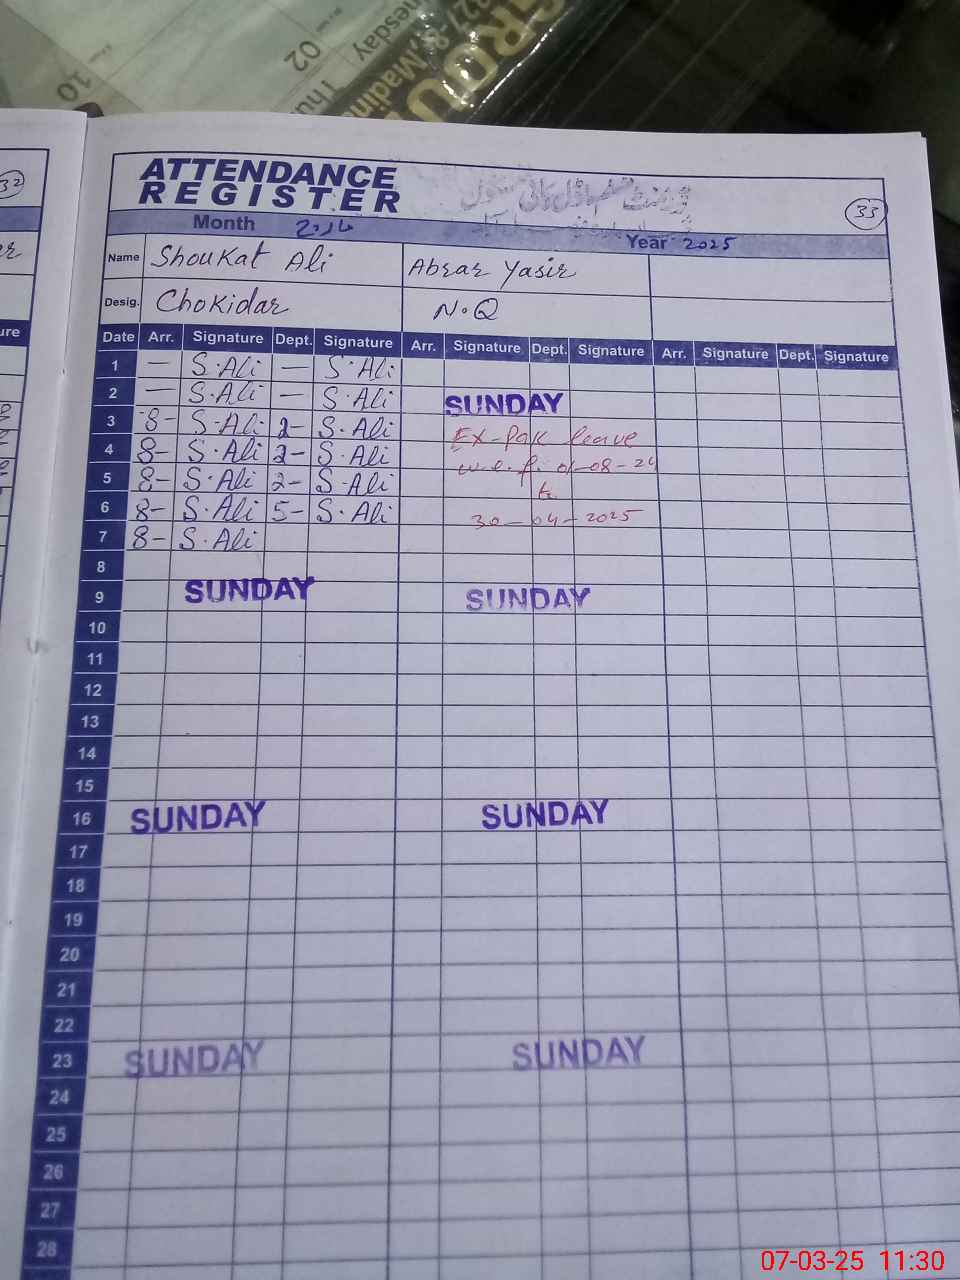 GROU
10
02
Thu
nesday
Madin
32
ATTENDANCE
REGISTER
33
Month مارچ Year 2025
Name Shoukat Ali Abrar Yasir
Desig. Chokidar N.Q
Date Arr. Signature Dept. Signature Arr. Signature Dept. Signature Arr. Signature Dept. Signature
1 — S.Ali — S.Ali
2 — S.Ali — S.Ali SUNDAY
3 8- S.Ali 2- S.Ali Ex-Pak leave
4 8- S.Ali 2- S.Ali w.e.f. 01-08-24
5 8- S.Ali 2- S.Ali to
6 8- S.Ali 5- S.Ali 30-04-2025
7 8- S.Ali
8
9 SUNDAY SUNDAY
10
11
12
13
14
15
16 SUNDAY SUNDAY
17
18
19
20
21
22
23 SUNDAY SUNDAY
24
25
26
27
28
07-03-25 11:30